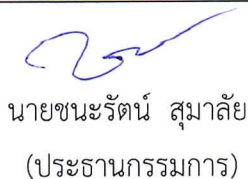 นายชนะรัตน์ สุมาลัย
(ประธานกรรมการ)